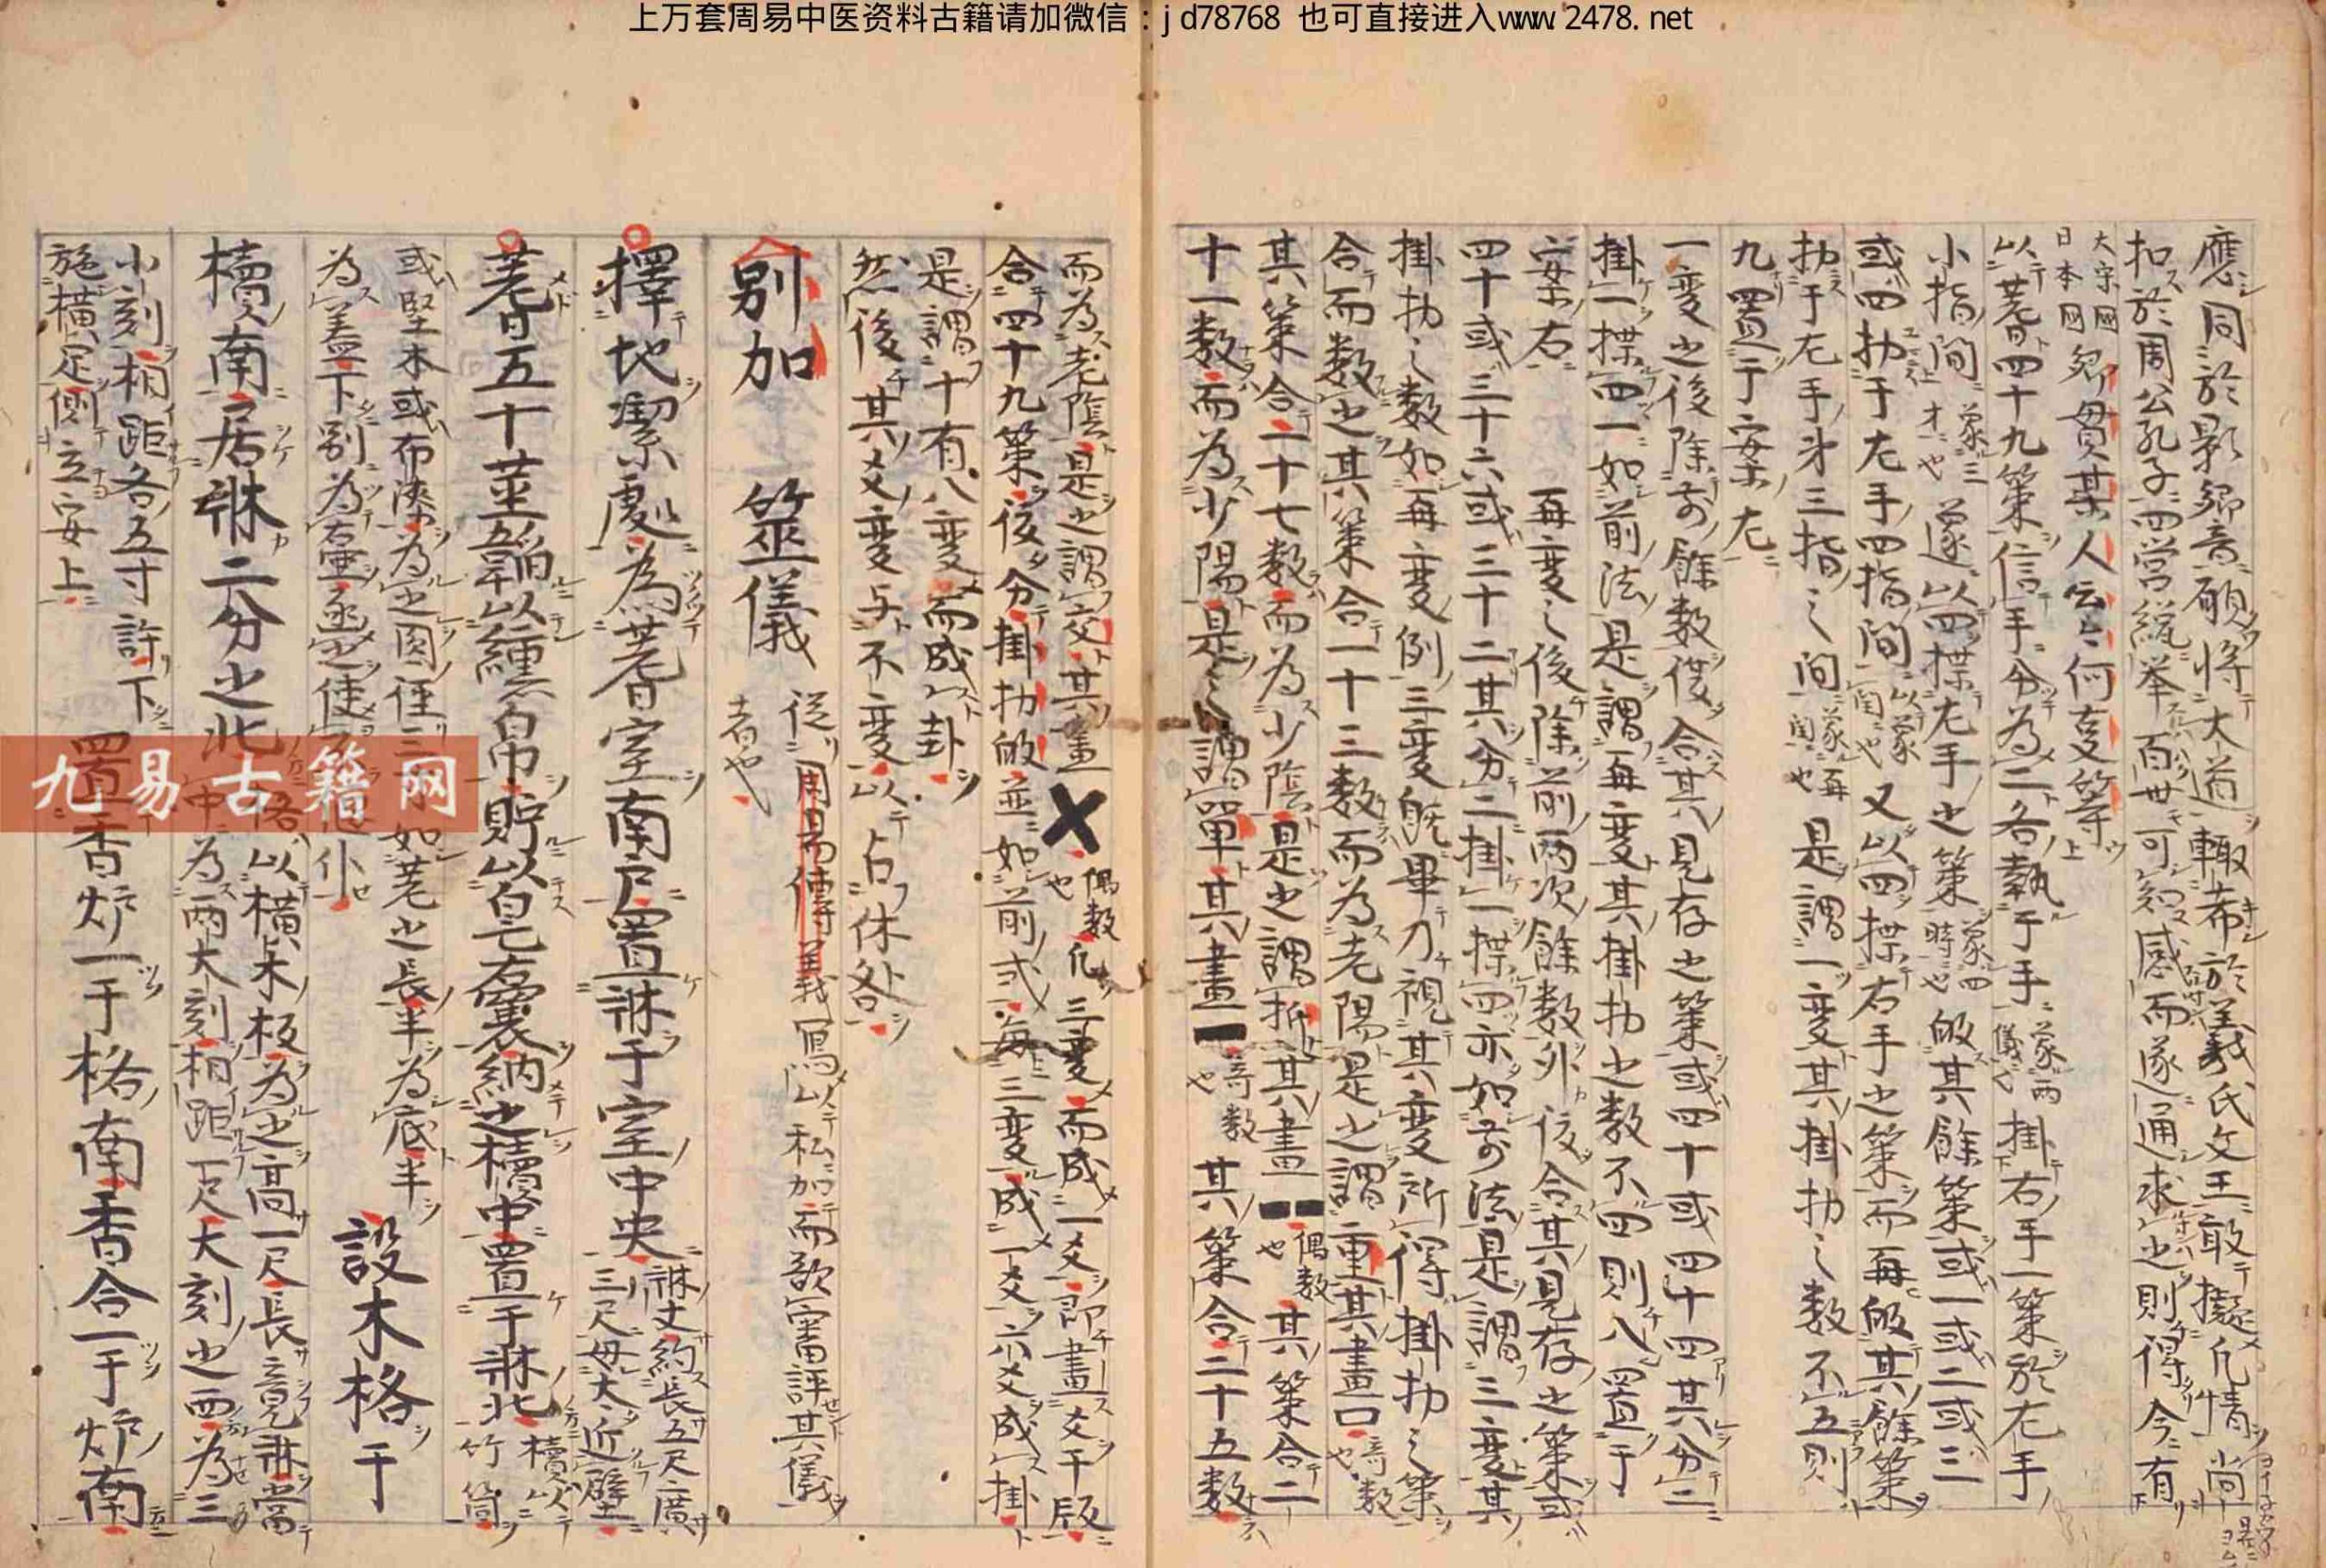 上万套周易中医资料古籍请加微信：jd78768 也可直接进入www.2478.net
應同於影響音願将大道輙希於羲氏文王敢擬凢情尚
扣於周公孔子四営統挙百世可知感而遂通求之則得今有
大宋國
日本國
卿貫某人云々何支等
以蓍四十九策信手分為二各執于手
象両
儀也
掛右手一策於左手
小指間
象三
才也
遂以四揲左手之策
象四
時也
皈其餘策或一或二或三
或四扐于左手四指間
以象
閏也
又以四揲右手之策而再皈其餘策
扐于左手才三指之間
象再
閏也
是謂一變其掛扐之数不五則
九置于案左
一變之後除前餘数復合其見存之策或四十或四十四其分二
掛一揲四一如前法是謂再變其掛扐之数不四則八置于
案右 再變之後除前两次餘数外復合其見存之策或
四十或三十六或三十二其分二掛一揲四亦如前法是謂三變其
掛扐之数如再變例三變既畢乃視其變所得掛扐之策
合而数之其策合一十三数而為老陽是之謂重其畫口
奇数
也
其策合二
其策合二十七数而為少陰是之謂拆其畫⚋
偶数
也
十一数而為少陽是之謂單其畫一
奇数
也
其策合二十五数
而為老陰是之謂交其畫X
偶数
也
凢三變而成一爻即畫爻于版
合四十九策復分掛扐皈並如前式每三變成一爻六爻成掛
是謂十有八變而成卦
然後其爻變与不變以占休咎
別加 筮儀
従周易傳義寫以私加而欲審詳其儀
者也
擇地潔處為蓍室南戸置牀于室中央
牀丈約長五尺廣
三尺毋大近壁
蓍五十莖韜以纁帛貯以皂嚢納之櫝中置于牀北
櫝以
竹筒
或堅木或布漆為之圓径三 如蓍之長半為底半
為蓋下別為臺函之使 仆
設木格于
櫝南居牀二分之北
格以横木板為之高一尺長竟牀當
中為両大刻相距一尺大刻之西為三
小刻相距各五寸許下
施横足側立安上
置香炉一于格南香合一于炉南
九易古籍网